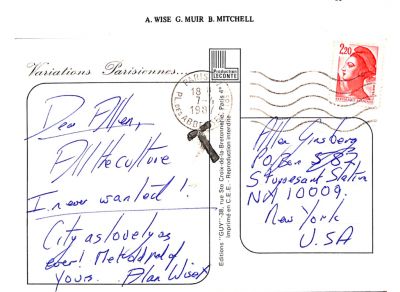 A. WISE G. MUIR B. MITCHELL
Variations Parisiennes...
Production
LECONTE
PARIS
18
7-
198
2,20
Dear Allen,
All the culture
I never wanted!
City as lovely as
ever!
Yours. Alan Wise X
Editions "GUY"-38, rue Ste Croix de la Bretonnerie, Paris 4e
Imprimé en C.E.E. - Reproduction interdite
Allen Ginsberg
PO Box 582
Stuyvesant Station
NY 10009.
New York
U.S.A